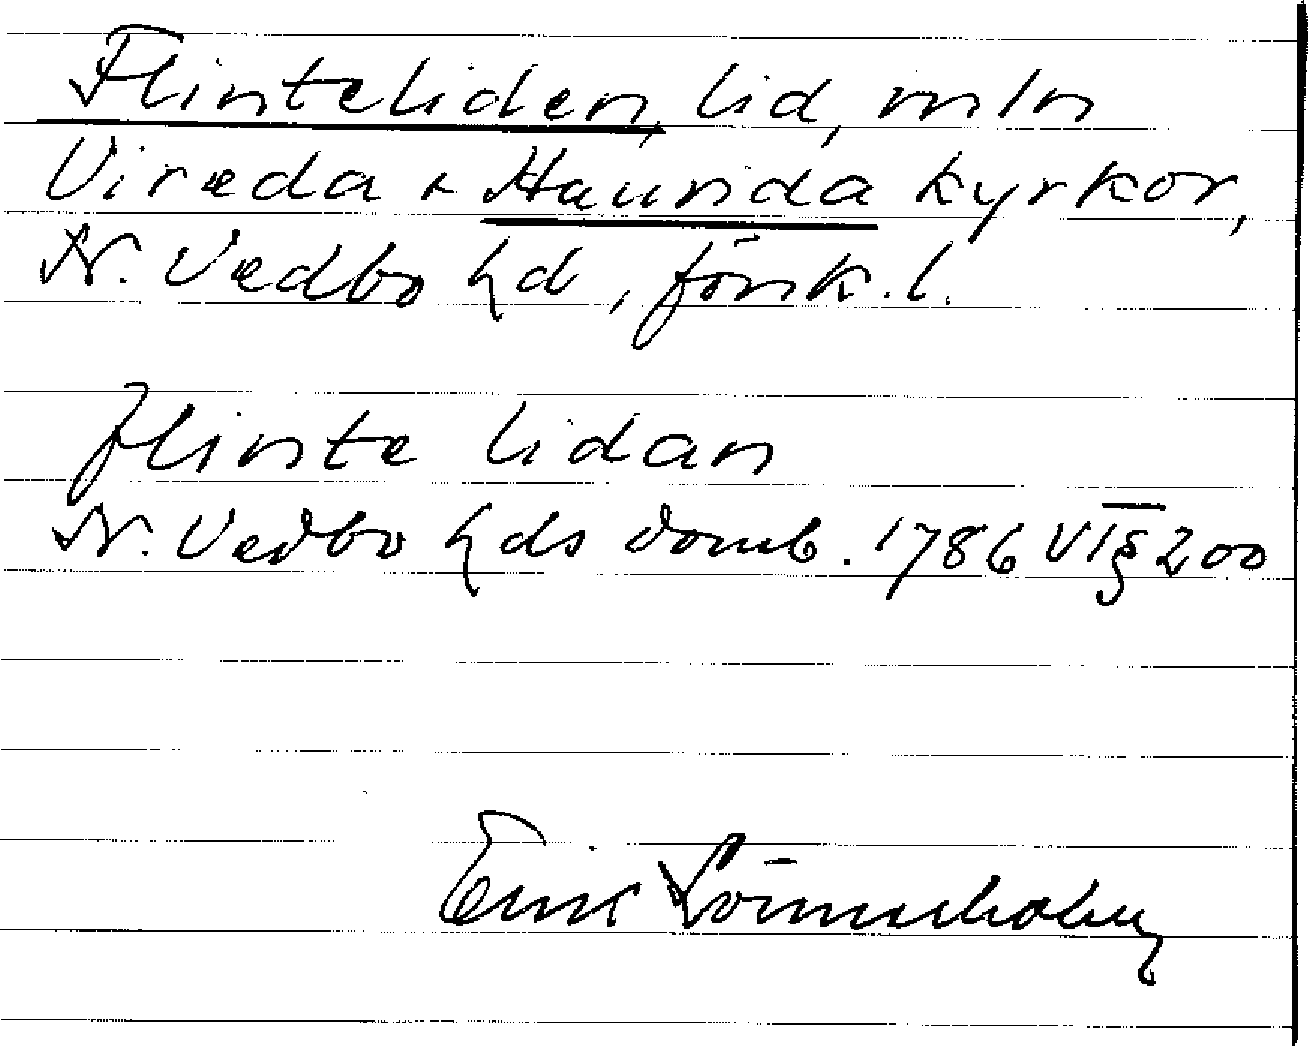 Flinteliden, lid, mln
Vireda & Haurida kyrkor,
N. Vedbo hd, Jönk. l.
Flinte lidan
N. Vedbo hds domb. 1786 VT § 200
Einar Lönnerholm